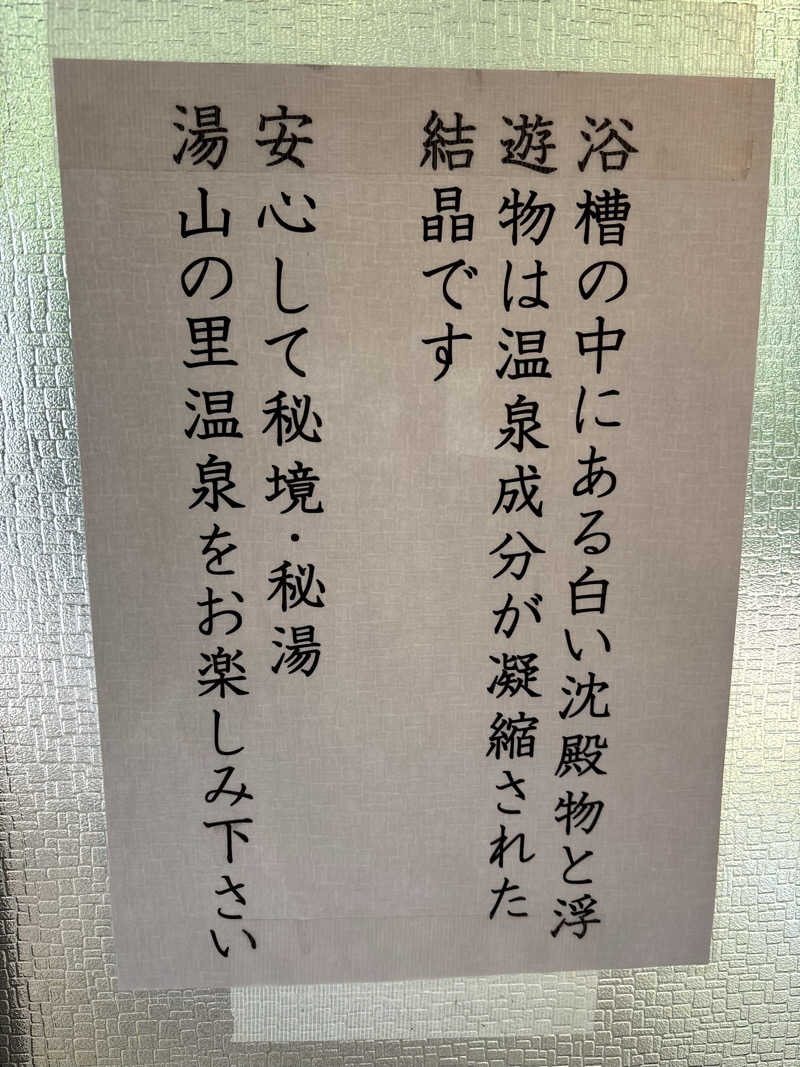 浴槽の中にある白い沈殿物と浮
遊物は温泉成分が凝縮された
結晶です
安心して秘境・秘湯
湯山の里温泉をお楽しみ下さい